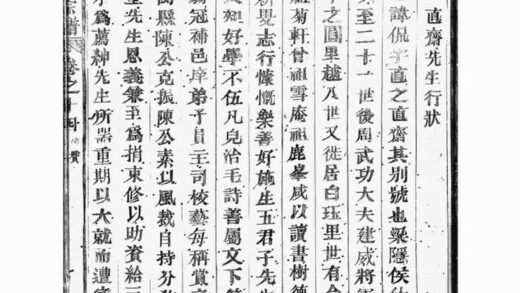 直齋先生行狀
諱侃字直之直齋其別號也梁隱侯
至二十一世後周武功大夫建威將
之圓里越八世又徙居白珏里世有令
菊軒曾祖雪庵祖鹿峯咸以讀書樹德
新叟志行慷慨樂善好施生五君子先
知好學不伍凡兒治毛詩善屬文下
冠補邑庠弟子員王司校藝每稱賞
縣陳公克振陳公素以風裁自持分
先生恩義兼至爲捐束修以助資給
爲薦紳先生所器重期以大就而遭
宗譜 卷之十四